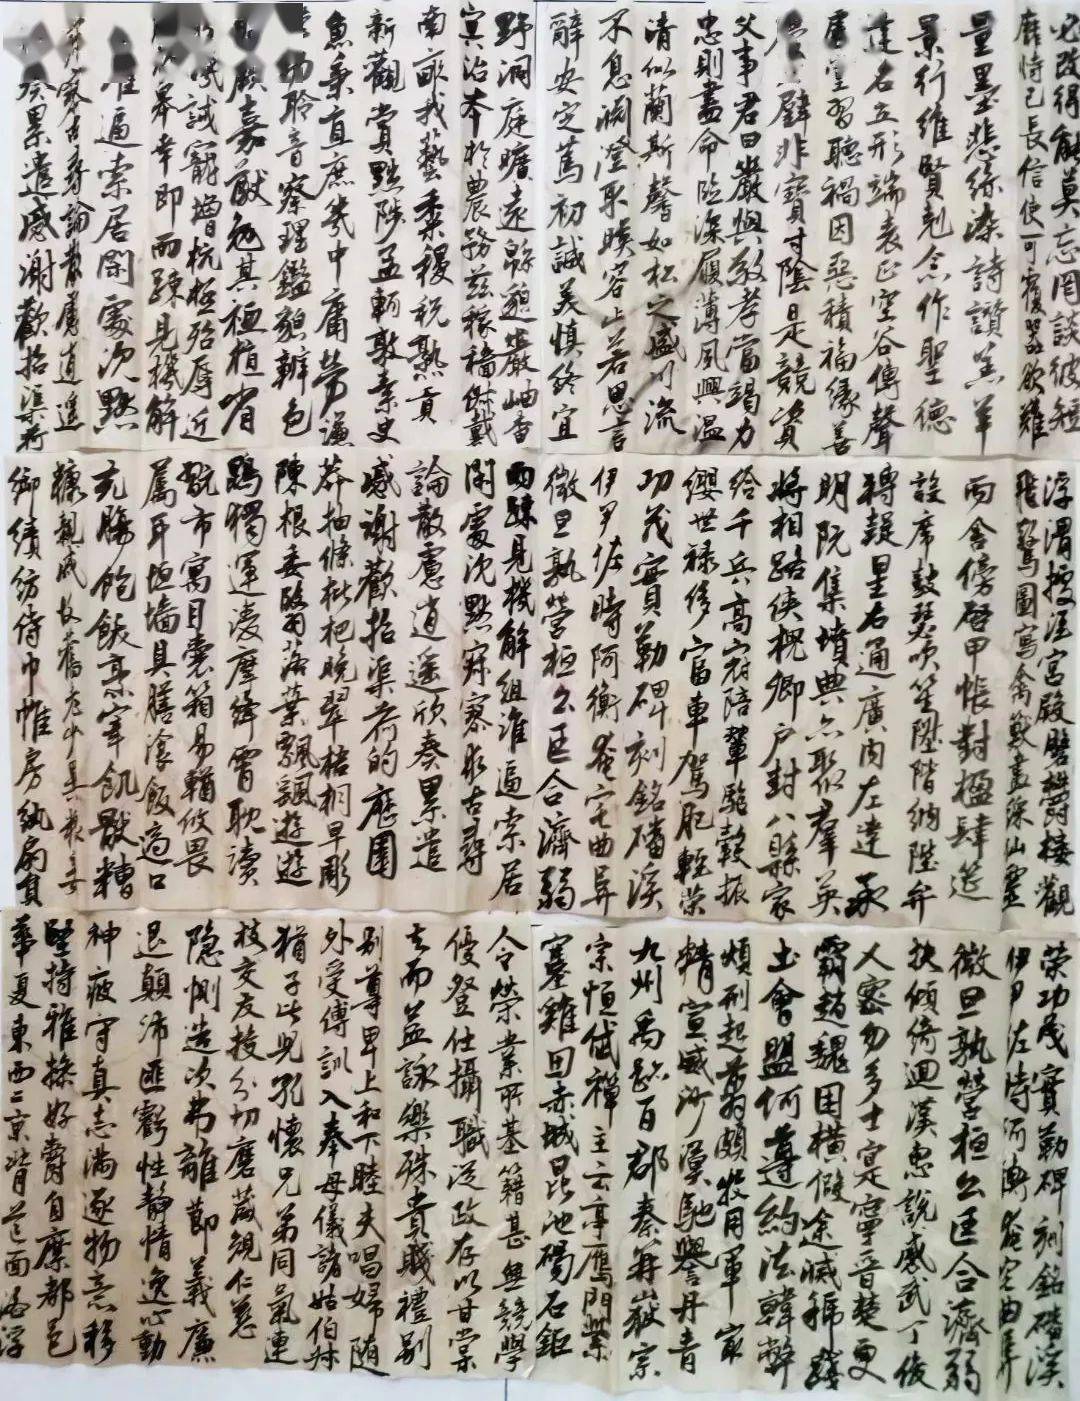 必改得能莫忘罔談彼短
靡恃己長信使可覆器欲難
量墨悲絲染詩讚羔羊
景行維賢剋念作聖德
建名立形端表正空谷傳聲
虛堂習聽禍因惡積福緣善
璧非寶寸陰是競資
父事君曰嚴與敬孝當竭力
忠則盡命臨深履薄夙興溫
清似蘭斯馨如松之盛川流
不息淵澄取暎容止若思言
辭安定篤初誠美慎終宜
野洞庭曠遠緜邈巖岫杳
冥治本於農務茲稼穡俶載
南畝我藝黍稷稅熟貢
新勸賞黜陟孟軻敦素史
魚秉直庶幾中庸勞謙
聆音察理鑑貌辨色
厥嘉猷勉其祗植省
譏誡寵增抗極殆辱近
幸即兩疏見機解
誰逼索居閑處沉默
寥求古尋論散慮逍遙
奏累遣慼謝歡招渠荷
浮渭據涇宮殿盤鬱樓觀
飛驚圖寫禽獸畫綵仙靈
丙舍傍啟甲帳對楹肆筵
設席鼓瑟吹笙陞階納陛弁
轉疑星右通廣內左達承
明既集墳典亦聚羣英
將相路俠槐卿戶封八縣家
給千兵高冠陪輦驅轂振
纓世祿侈富車駕肥輕策
功茂實勒碑刻銘磻溪
伊尹佐時阿衡奄宅曲阜
微旦孰營桓公匡合濟弱
兩疏見機解組誰逼索居
閑處沉默寂寥求古尋
論散慮逍遙欣奏累遣
慼謝歡招渠荷的歷園
莽抽條枇杷晚翠梧桐早彫
陳根委翳落葉飄颻遊
鵾獨運凌摩絳霄耽讀
翫市寓目囊箱易輶攸畏
屬耳垣墻具膳湌飯適口
充腸飽飫烹宰飢厭糟
糠親戚故舊老少異糧妾
御績紡侍巾帷房紈扇員
策功茂實勒碑刻銘磻溪
伊尹佐時阿衡奄宅曲阜
微旦孰營桓公匡合濟弱
扶傾綺迴漢惠說感武丁俊
乂密勿多士寔寧晉楚更
霸趙魏困橫假途滅虢踐
土會盟何遵約法韓弊
煩刑起翦頗牧用軍最
精宣威沙漠馳譽丹青
九州禹跡百郡秦并嶽宗
宗恒岱禪主云亭鴈門紫
塞雞田赤城昆池碣石鉅
令榮業所基籍甚無競學
優登仕攝職從政存以甘棠
去而益詠樂殊貴賤禮別
別尊卑上和下睦夫唱婦隨
外受傅訓入奉母儀諸姑伯叔
猶子比兒孔懷兄弟同氣連
枝交友投分切磨箴規仁慈
隱惻造次弗離節義廉
退顛沛匪虧性靜情逸心動
神疲守真志滿逐物意移
堅持雅操好爵自縻都邑
華夏東西二京背芒面洛浮